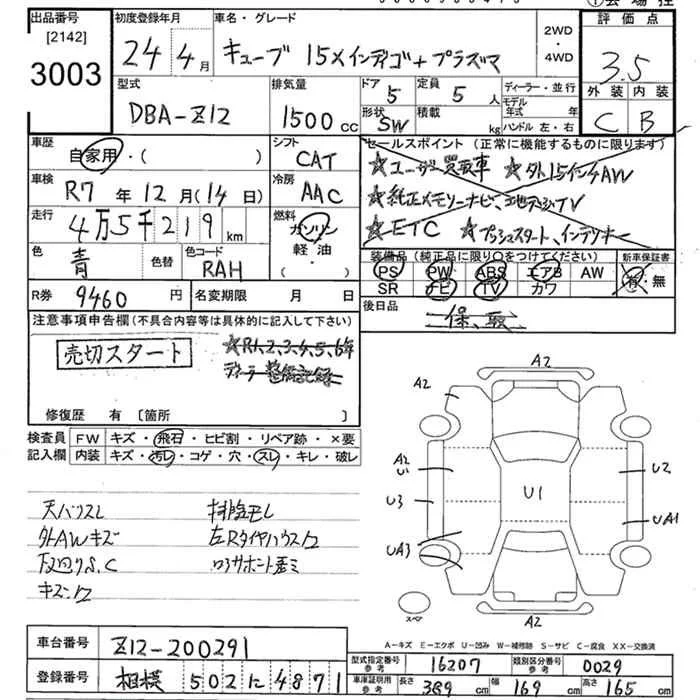 会場控
出品番号
[2142]
3003
初度登録年月
24 4月
車名・グレード
キューブ 15Xインディゴ+プラズマ
2WD
・
4WD
評価点
3.5
外装 内装
C B
型式
DBA-Z12
排気量
1500cc
ドア
5
形状
SW
定員
5人
積載
kg
ディーラー・並行
モデル年式 年
ハンドル 左・右
車歴
自家用・( )
シフト
CAT
車検
R7年12月(14日)
冷房
AAC
走行
4万5千219km
燃料
ガソリン
軽油
( )
色
青
色替
色コード
RAH
R券 9460円
名変期限 月 日
セールスポイント(正常に機能するものに限ります)
★ユーザー買取車 ★外15インチAW
★純正メモリーナビ、地デジTV
★ETC ★プッシュスタート、インテリキー
装備品(純正品に限り○をつけてください)
PS PW ABS エアB AW
SR ナビ TV カワ
新車保証書
有・無
後日品
保、取
注意事項申告欄(不具合内容等は具体的に記入して下さい)
売切スタート
★R1、2、3、4、5、6年
ディーラー整備記録
修復歴 有 〔箇所 〕
検査員記入欄
FW キズ・飛石・ヒビ割・リペア跡・×要
内装 キズ・汚レ・コゲ・穴・スレ・キレ・破レ
外AWキズ
左Rタイヤハウス
A2
A2
A2
U1
U3
UA3
U1
U2
UA1
A2
スペア
A-キズ E-エクボ U-凹み W-補修跡 S-サビ C-腐食 XX-交換済
車台番号 Z12-200291
登録番号 相模 502 に 4871
型式指定番号 参考 16207
類別区分番号 参考 0029
車庫証明用 参考 長さ 389cm 幅 169cm 高さ 165cm